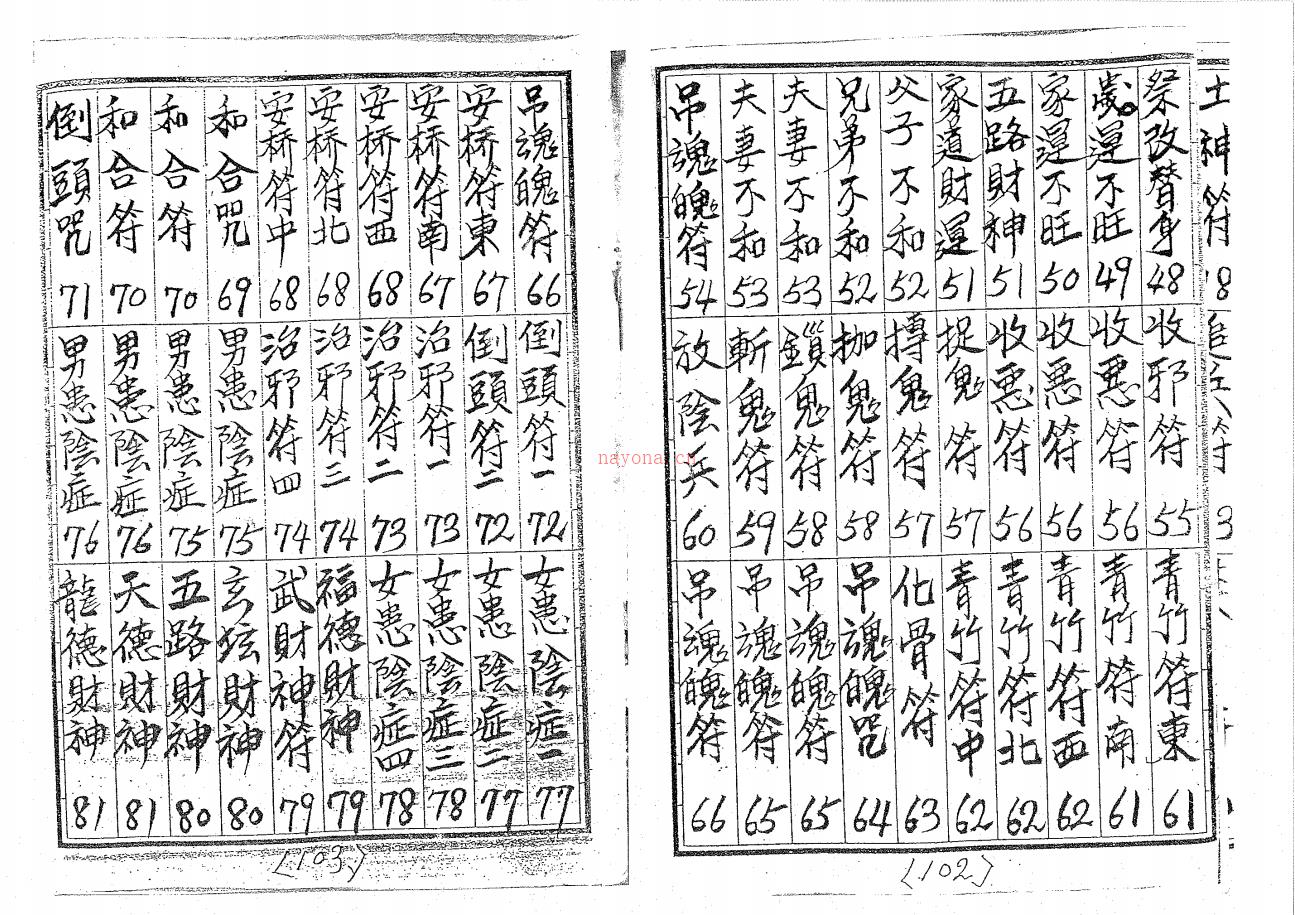 土神符 18
祭改替身 48
歲運不旺 49
家運不旺 50
五路財神 51
家道財運 51
父子不和 52
兄弟不和 52
夫妻不和 53
夫妻不和 53
吊魂魄符 54
收邪符 55
收惡符 56
收惡符 56
收惡符 56
捉鬼符 57
摶鬼符 57
枷鬼符 58
鎖鬼符 58
斬鬼符 59
放陰兵 60
青竹符東 61
青竹符南 61
青竹符西 62
青竹符北 62
青竹符中 62
化骨符 63
吊魂魄咒 64
吊魂魄符 65
吊魂魄符 65
吊魂魄符 66
〈102〉
吊魂魄符 66
安桥符東 67
安桥符南 67
安桥符西 68
安桥符北 68
安桥符中 68
和合咒 69
和合符 70
和合符 70
倒頭咒 71
倒頭符一 72
倒頭符二 72
治邪符一 73
治邪符二 73
治邪符三 74
治邪符四 74
男患陰症 75
男患陰症 75
男患陰症 76
男患陰症 76
女患陰症一 77
女患陰症二 77
女患陰症三 78
女患陰症四 78
福德財神 79
武財神符 79
玄坛財神 80
五路財神 80
天德財神 81
龍德財神 81
〈103〉
nayona.cn